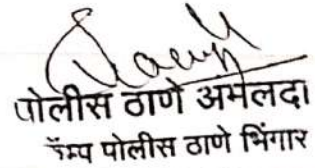 पोलीस ठाणे अंमलदा
कॅम्प पोलीस ठाणे भिंगार